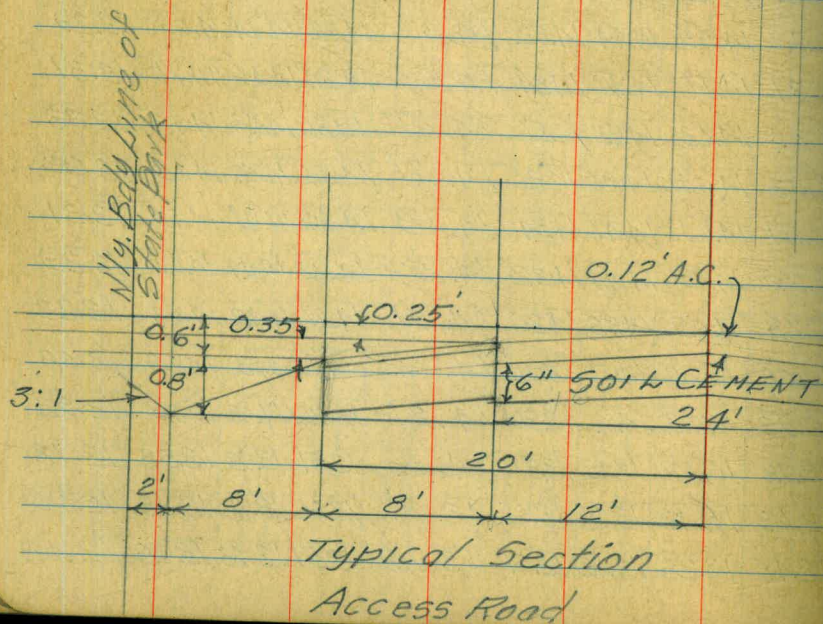 N'ly. Bdy Line of
State Park
0.12' A.C.
0.25'
0.35'
0.6'
0.8'
3:1
6" SOIL CEMENT
24'
20'
2'
8'
8'
12'
Typical Section
Access Road